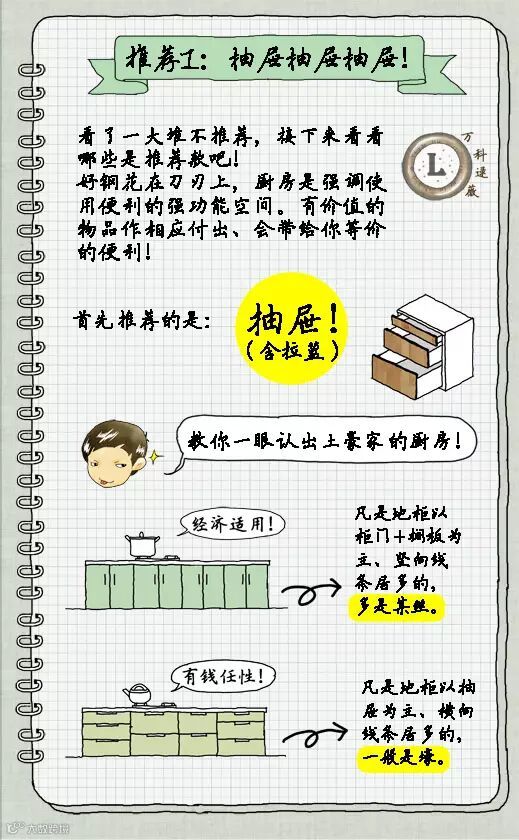 推荐1：抽屉抽屉抽屉！
看了一大堆不推荐，接下来看看
哪些是推荐款吧！
好钢花在刀刃上，厨房是强调使
用便利的强功能空间。有价值的
物品作相应付出、会带给你等价
的便利！
L
万科速薇
首先推荐的是：
抽屉！
（含拉篮）
教你一眼认出土豪家的厨房！
经济适用！
凡是地柜以
柜门+搁板为
主、竖向线
条居多的，
多是某丝。
有钱任性！
凡是地柜以抽
屉为主、横向
线条居多的，
一般是壕。
大数跨境